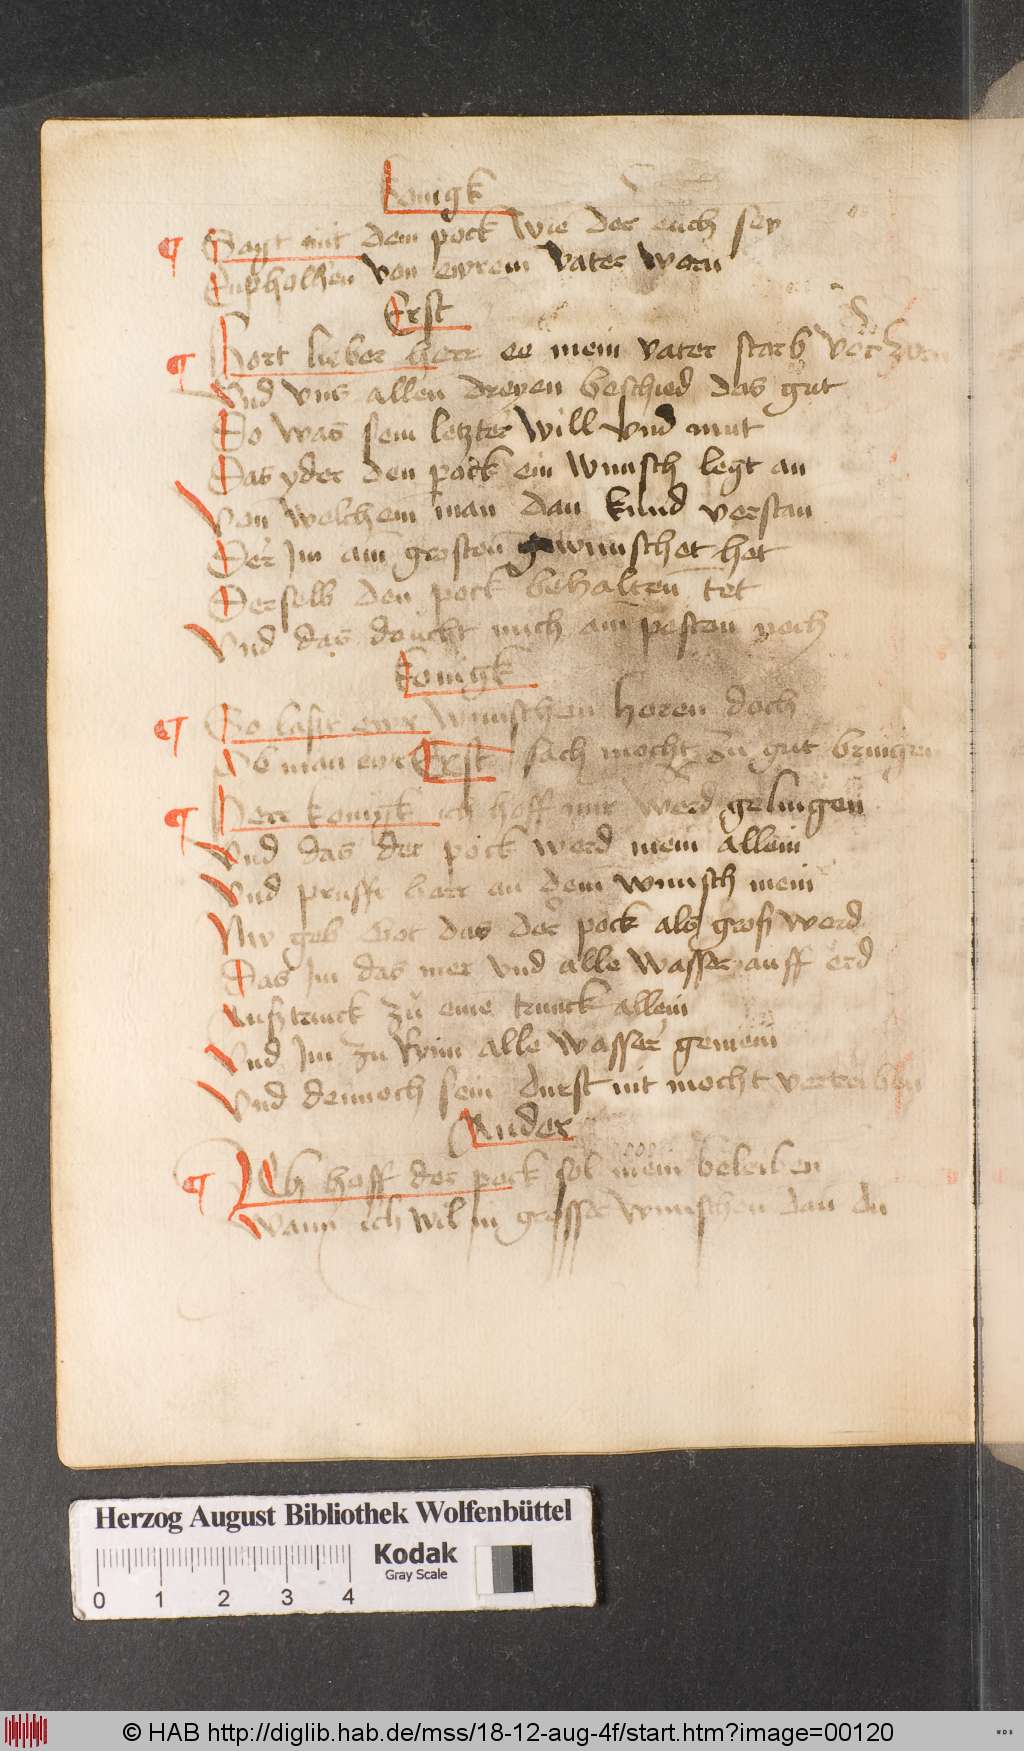 konigk
Sagt mit dem pock wie der euch sey
Enpholhen von ewrem vater worn
Erst
Hort lieber herr ee mein vater starb vor zorn
Vnd vns allen dreyen beschied das gut
Do was sein letzter will vnd mut
Das yder den pock ein wunsch legt an
Von welchem man dan kund verstan
Der Im am grosten gewunschet het
Derselb den pock behalten tet
Vnd das daucht mich am pesten noch
konigk
So lasst ewr wunschen horen doch
Ob man ewr sach mocht zu gut bringen
Erst
Herr konigk ich hoff mir werd gelingen
Vnd das der pock werd mein allein
Vnd prufft herr an dem wunsch mein
Nw geb Got das der pock als groß werd
Das Im das mer vnd alle wasser auff erd
Außtrinck zu eine trunck allein
Vnd Im zu Rinn alle wasser gemein
Vnd dennoch sein durst nit mocht vertreiben
Ander
Ich hoff der pock sol mein beleiben
Wann ich wil in grosser wunschen dan du
Herzog August Bibliothek Wolfenbüttel
Kodak
Gray Scale
0 1 2 3 4
© HAB http://diglib.hab.de/mss/18-12-aug-4f/start.htm?image=00120